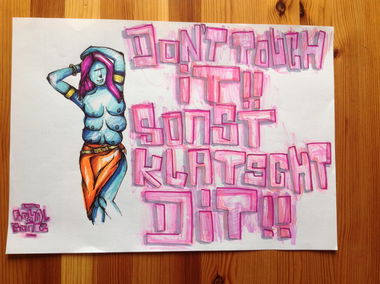 DON'T TOUCH
iT!!
SONST
KLATSCHT
DiT!!